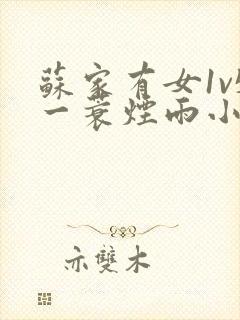 蘇家有女1v1
一蓑煙雨小
亦雙木